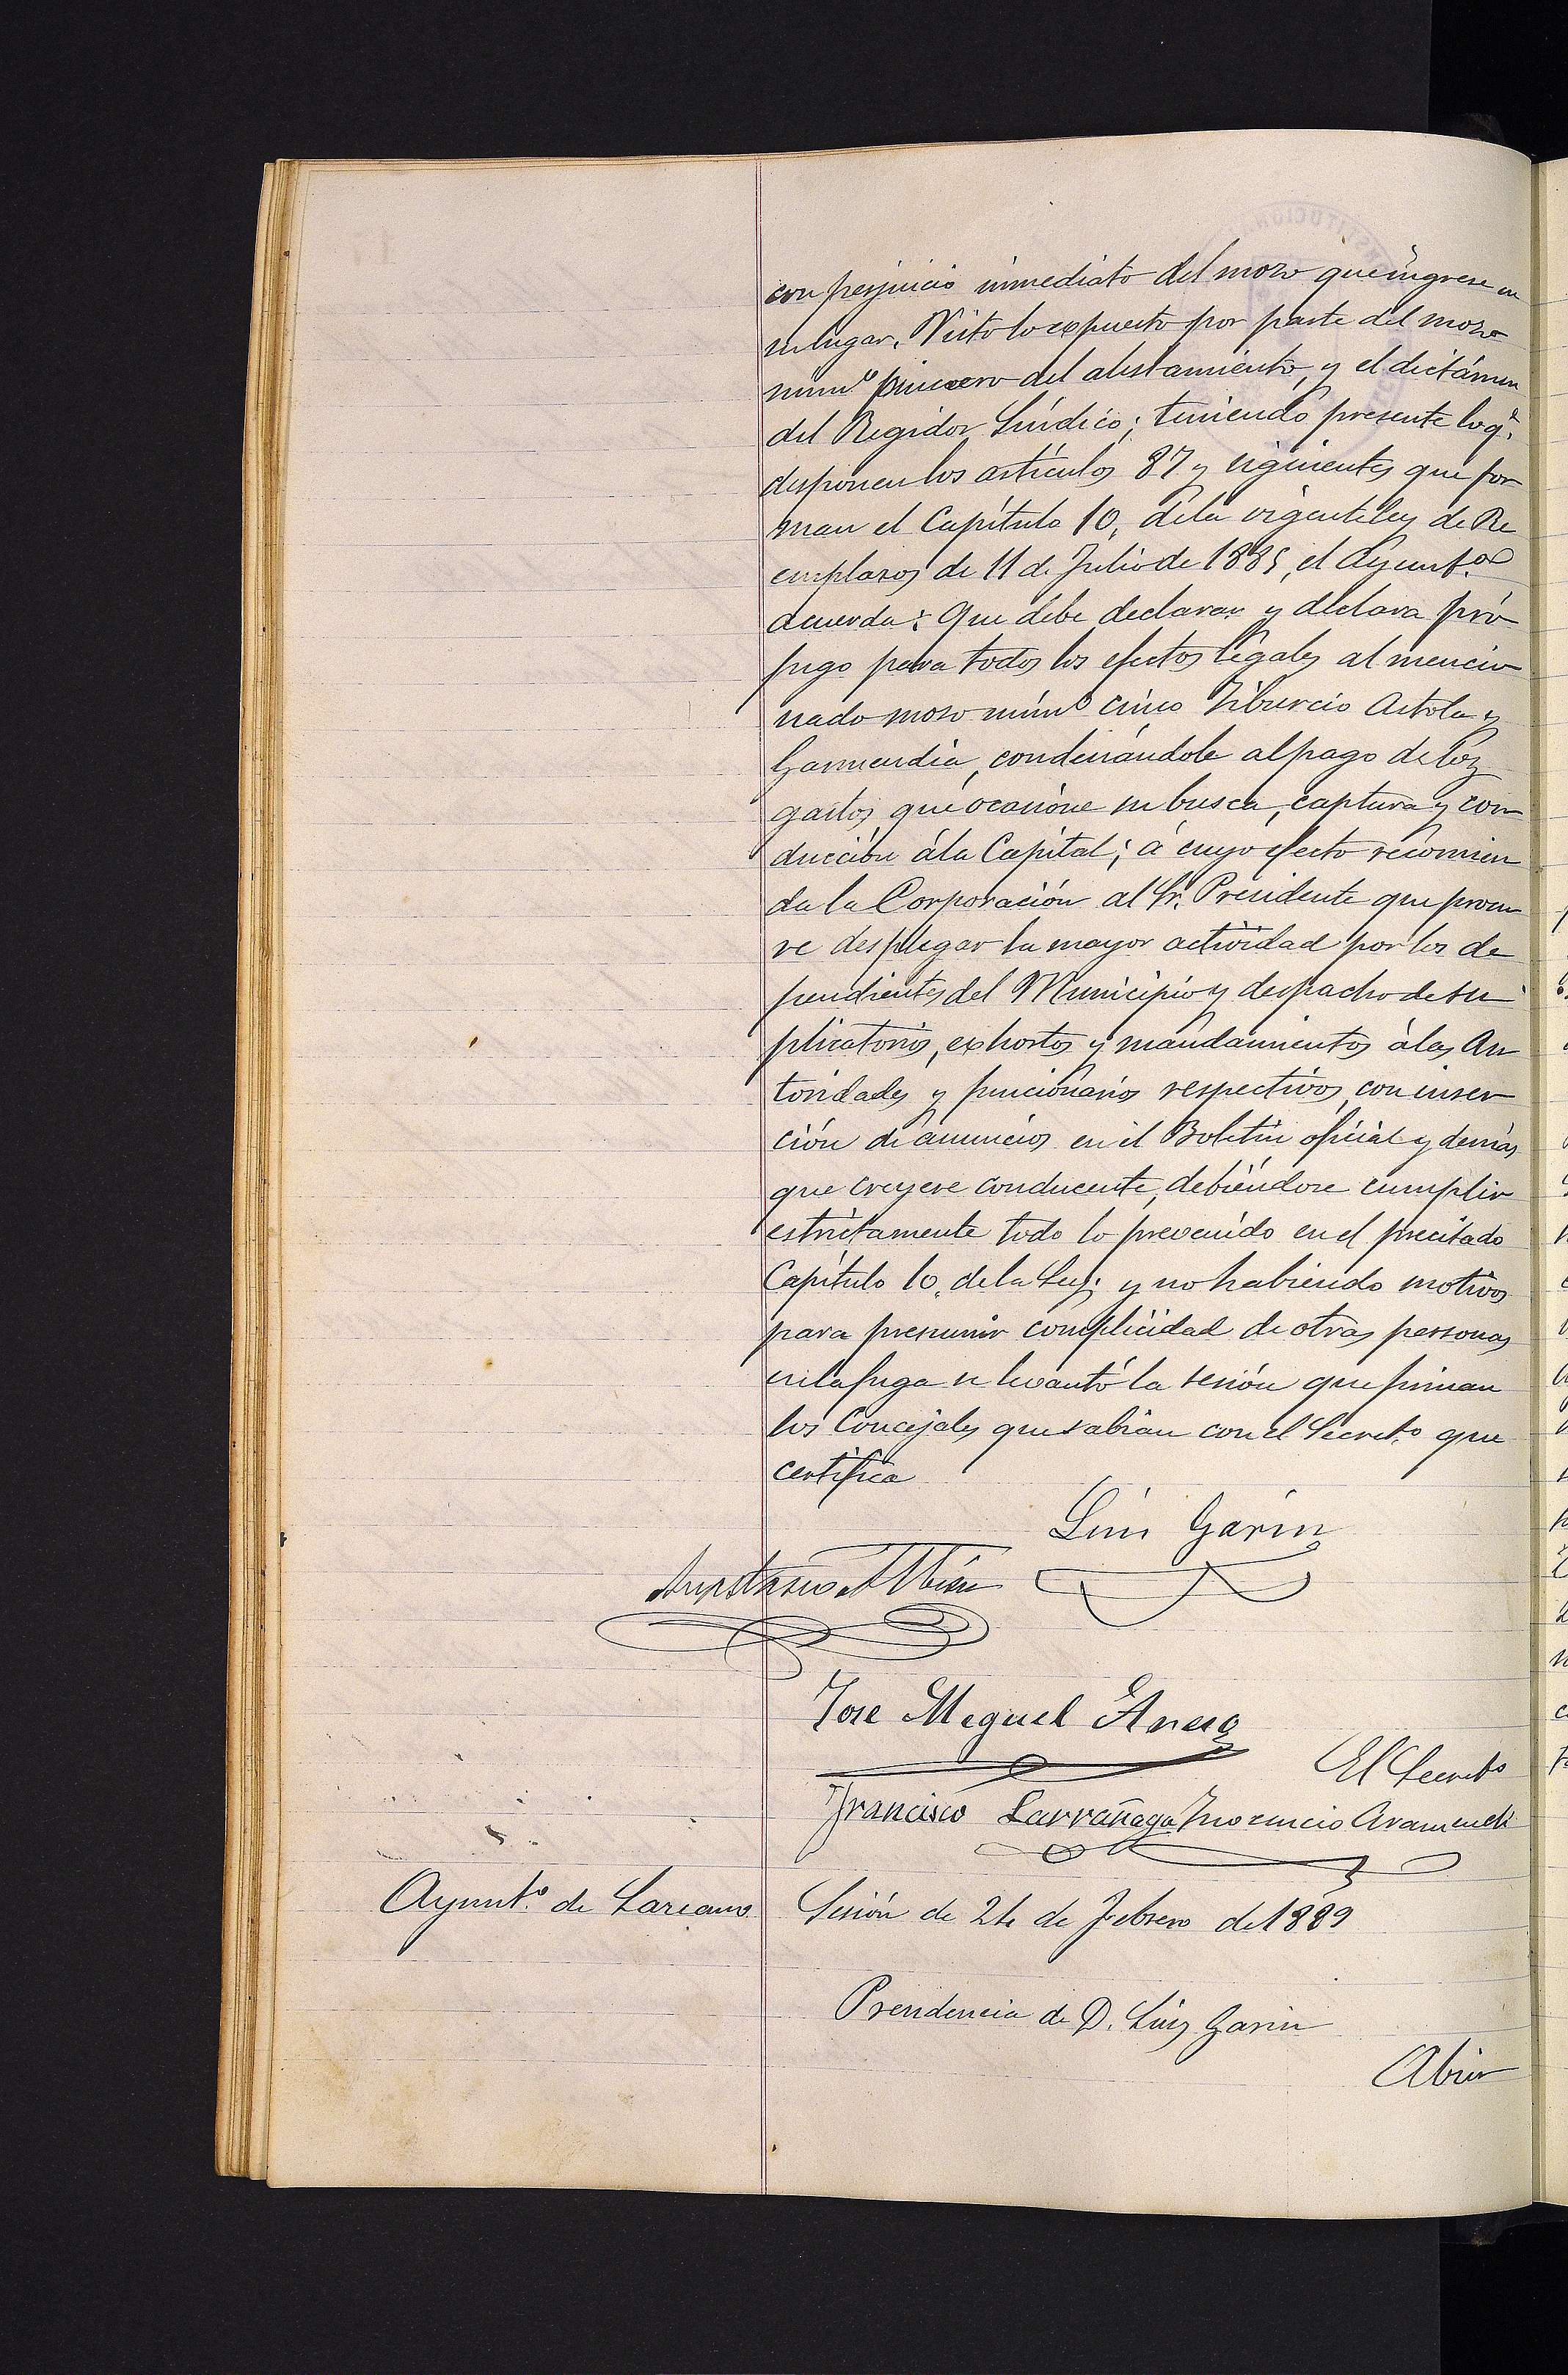 con perjuicio inmediato del mozo que ingrese en
su lugar. Visto lo expuesto por parte del mozo
númº primero del alistamiento, y el dictámen
del Regidor Síndico; teniendo presente lo q.
disponen los artículos 87 y siguientes que for
man el Capítulo 10, de la vigente ley de Re
emplazos de 11 de Julio de 1885, el Ayuntº
acuerda: Que debe declarar y declara pró
fugo para todos los efectos legales al mencio
nado mozo númº cinco Tiburcio Astola y
Garmendia, condenándole al pago de los
gastos que ocasione su busca, captura y con
ducción á la Capital; á cuyo efecto recomien
da la Corporación al Sr. Presidente que procu
re desplegar la mayor actividad por los de
pendientes del Municipio y despacho de su
plicatorios, exhortos y mandamientos á las Au
toridades y funcionarios respectivos, con inser
ción de anuncios en el Boletin oficial y demás
que creyere conducente, debiéndose cumplir
estrictamente todo lo prevenido en el precitado
Capítulo 10, de la Ley; y no habiendo motivos
para presumir complicidad de otras personas
en la fuga se levantó la sesión que firman
los Concejales que sabian con el Secretº que
certifica
Luis Garin
Anastasio
Jose Meguel
El Secretº
Francisco Larrañaga Inocencio Aramendi
Ayuntº de Lazcano
Sesión de 24 de Febrero de 1889
Presidencia de D. Luis Garin
Abier